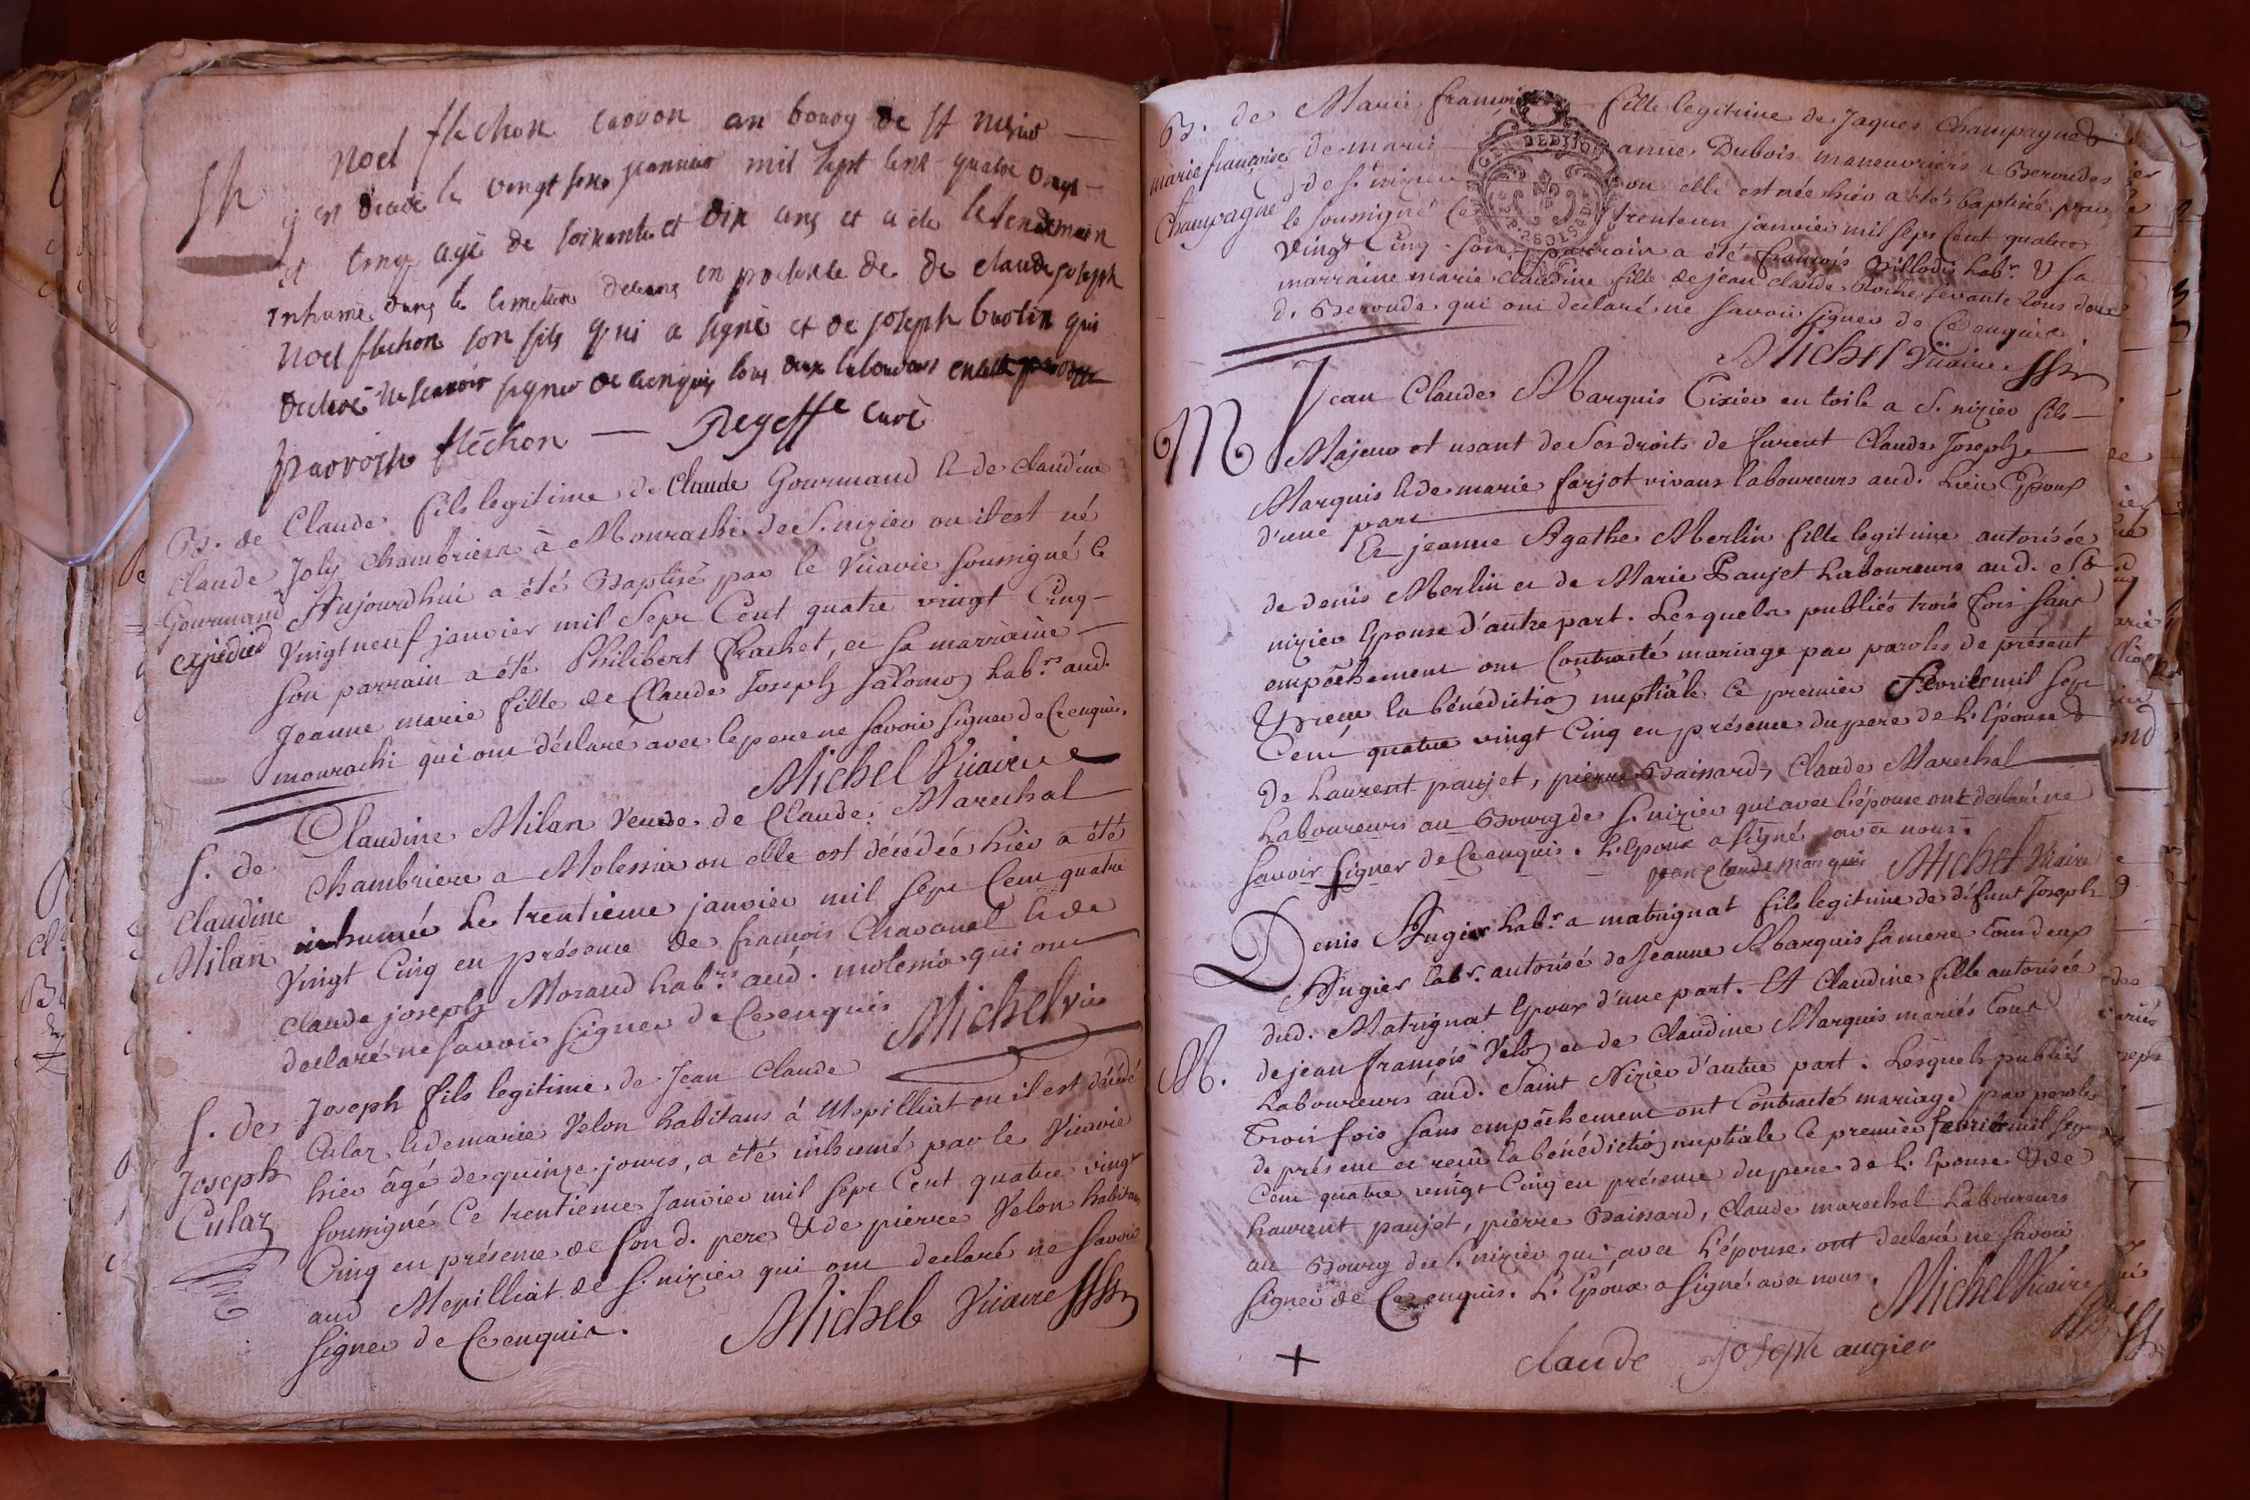 noel flechon caovon au bourg de st nisier
Sh y est decede le vingt six janvier mil sept cent quatre vingt
et cinq agé de soixante et dix ans et a ete le lendemain
inhumé dans le cimetiere dedans en presence de de claude joseph
noel flechon son fils qui a signé et de joseph buotin qui
declaré ne scavoir signer de ce enquis tous deux laboureurs
flechon — Regeffe curé
B. de Claude fils legitime de Claude Gourmand & de claudine
claude Joly chambriers à Mourachi de S. nizier ou il est né
Gourmand Aujourdhui a été Baptisé par le Vicaire soussigné ce
expédiée Vingt neuf janvier mil Sept Cent quatre vingt Cinq –
Son parrain a été Philibert Frachet, et sa marraine –
Jeanne marie fille de Claude Joseph Salomon Lab.rs aud.
mourachi qui ont déclaré avec le pere ne savoir signer de ce enquis.
Michel Vicaire
Claudine Milan Veuve de Claude Marechal
f. de Chambriere a Molessia ou elle est décédée hier a été
Claudine inhumée Le trentieme janvier mil Sept Cent quatre
Milan Vingt Cinq en présence de francois Chavanel & de
claude joseph Morand hab.rs aud. molessia qui ont
declaré ne savoir signer de ce enquis Michel vic
Joseph fils legitime de Jean Claude
f. de Culaz & de marie Velon habitans à Mepilliat ou il est décédé
Joseph hier âgé de quinze jours, a été inhumé par le Vicaire
Culaz soussigné Ce trentieme Janvier mil Sept Cent quatre vingt
Cinq en présence de son d. pere & de pierre Velon habitans
aud Mepilliat de S. nizier qui ont declaré ne savoir
signer de ce enquis. Michel Vicaire
B. de Marie françoise fille legitime de Jaques Champagne &
marie françoise de marie anne Dubois maneuvriers a Beroudes
Champagne de S. nizier ou elle est née hier a été baptisée par
le soussigné Ce trente un janvier mil Sept Cent quatre
Vingt Cinq – Son parrain a été françois Villods Lab.r & sa
marraine marie Claudine fille de jean claude Roche servante tous deux
de Beroude qui ont declaré ne savoir signer de ce enquis
Michel Vicaire
Jean Claude Marquis Tixier en toile a S. nizier fils –
M Majeur et usant de ses droits de furent Claude Joseph
Marquis & de marie farjot vivans laboureurs aud. Lieu Epoux
d'une part
Et jeanne Agathe Merlin fille legitime autorisée
de denis Merlin et de Marie Paujet Laboureurs aud. St
nizier Epouse d'autre part. Lesquels publiés trois fois sans
empêchement ont Contracté mariage par paroles de présent
& reçu la bénédiction nuptiale ce premier Fevrier mil sept
Cent quatre vingt Cinq en présence du pere de L'Epouse &
de Laurent paujet, pierre Baissard, Claude Marechal
Laboureurs au Bourg de S. nizier qui avec l'épouse ont declaré ne
savoir signer de ce enquis. L'Epoux a signé avec nous.
jean Claude marquis Michel Vicaire
Denis Augier Lab.r a matrignat fils legitime de défunt Joseph
Augier Lab.r autorisé de Jeanne Marquis sa mere tous deux
dud. Matrignat Epoux d'une part. Et Claudine fille autorisée
M. de jean françois Velon et de Claudine Marquis mariés tous
Laboureurs aud. Saint Nizier d'autre part. Lesquels publiés
Trois fois sans empêchement ont Contracté mariage par paroles
de présent et reçu la bénédiction nuptiale ce premier fevrier mil sept
Cent quatre vingt Cinq en présence du pere de L'Epouse & de
Laurent paujet, pierre Baissard, Claude marechal Laboureurs
au Bourg de S. nizier qui avec L'épouse ont declaré ne savoir
signer de Ce enquis. L'Epoux a signé avec nous. Michel Vicaire
claude joseph augier